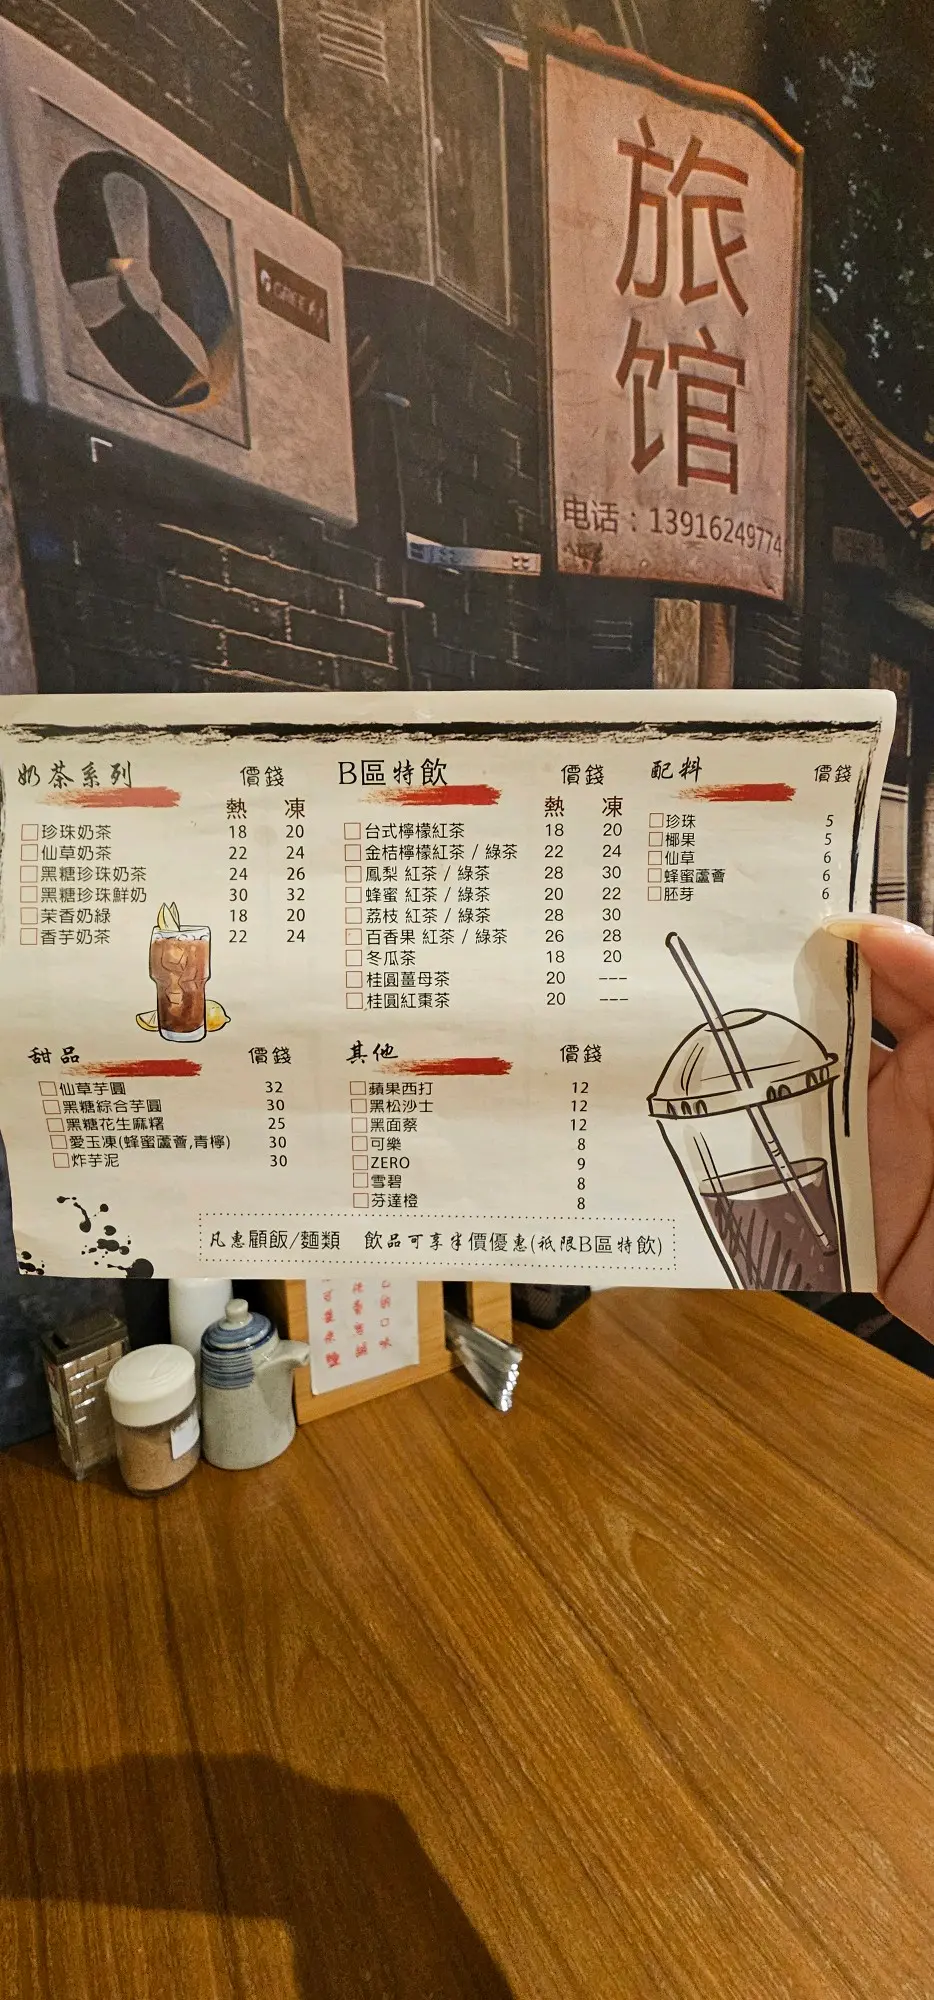 GREE
旅
馆
电话：13916249774
奶茶系列 價錢
熱 凍
珍珠奶茶 18 20
仙草奶茶 22 24
黑糖珍珠奶茶 24 26
黑糖珍珠鮮奶 30 32
茉香奶綠 18 20
香芋奶茶 22 24
B區特飲 價錢
熱 凍
台式檸檬紅茶 18 20
金桔檸檬紅茶 / 綠茶 22 24
鳳梨 紅茶 / 綠茶 28 30
蜂蜜 紅茶 / 綠茶 20 22
荔枝 紅茶 / 綠茶 28 30
百香果 紅茶 / 綠茶 26 28
冬瓜茶 18 20
桂圓薑母茶 20 ---
桂圓紅棗茶 20 ---
配料 價錢
珍珠 5
椰果 5
仙草 6
蜂蜜蘆薈 6
胚芽 6
甜品 價錢
仙草芋圓 32
黑糖綜合芋圓 30
黑糖花生麻糬 25
愛玉凍(蜂蜜蘆薈,青檸) 30
炸芋泥 30
其他 價錢
蘋果西打 12
黑松沙士 12
黑面蔡 12
可樂 8
ZERO 9
雪碧 8
芬達橙 8
凡惠顧飯/麵類 飲品可享半價優惠(祇限B區特飲)